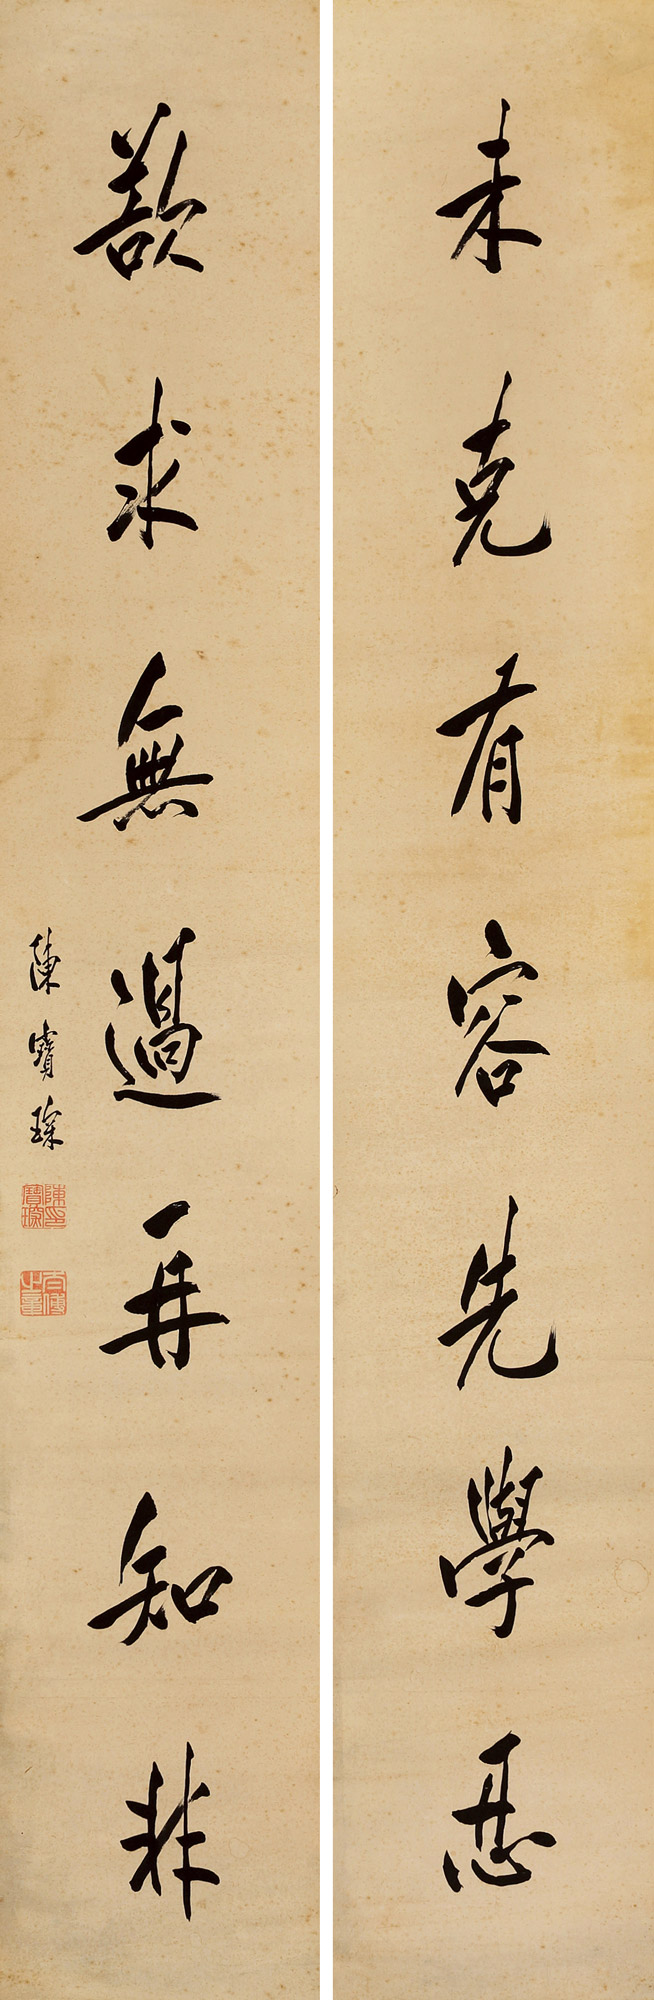 未克有容先學忍
欲求無過再知非
陳寶琛
陳寶琛印